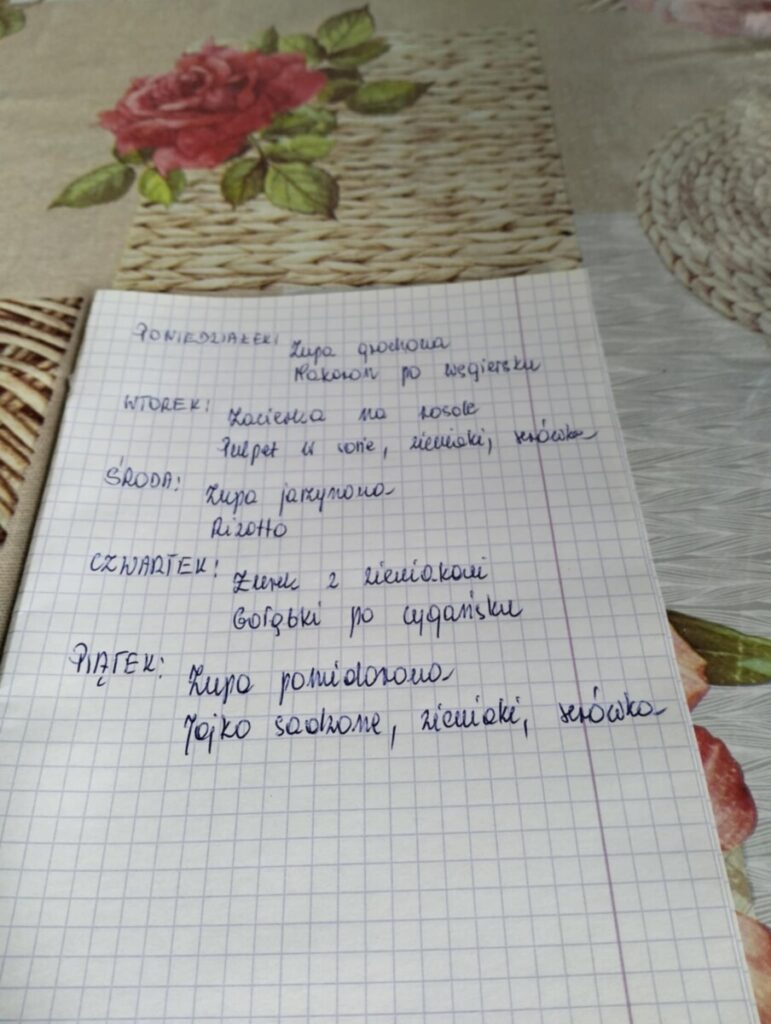 PONIEDZIAŁEK: Zupa grochowa
Makaron po węgiersku
WTOREK: Zacierka na rosole
Pulpet w sosie, ziemniaki, surówka
ŚRODA: Zupa jarzynowa
Rizotto
CZWARTEK: Żurek z ziemniakami
Gołąbki po cygańsku
PIĄTEK: Zupa pomidorowa
Jajko sadzone, ziemniaki, surówka